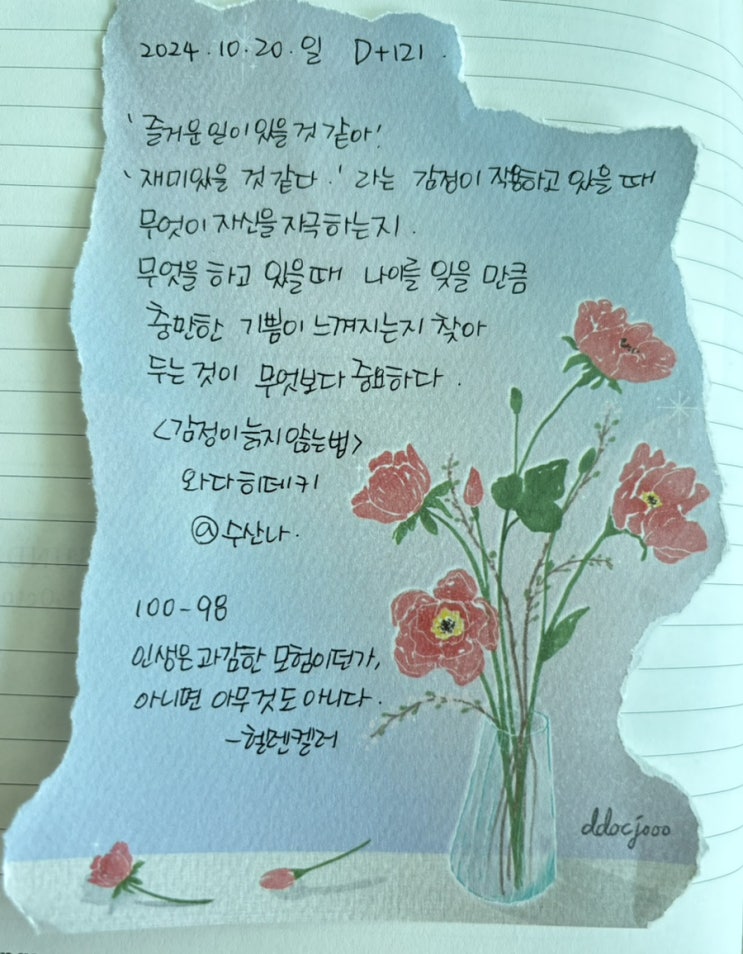 2024.10.20.일 D+121.
'즐거운 일이 있을 것 같아!
'재미있을 것 같다.'라는 감정이 작용하고 있을 때
무엇이 자신을 자극하는지.
무엇을 하고 있을때 나이를 잊을 만큼
충만한 기쁨이 느껴지는지 찾아
두는 것이 무엇보다 중요하다.
<감정이 늙지 않는법>
와다히데키
@수산나.
100-98
인생은 과감한 모험이던가,
아니면 아무것도 아니다.
-헬렌켈러
ddocjooo